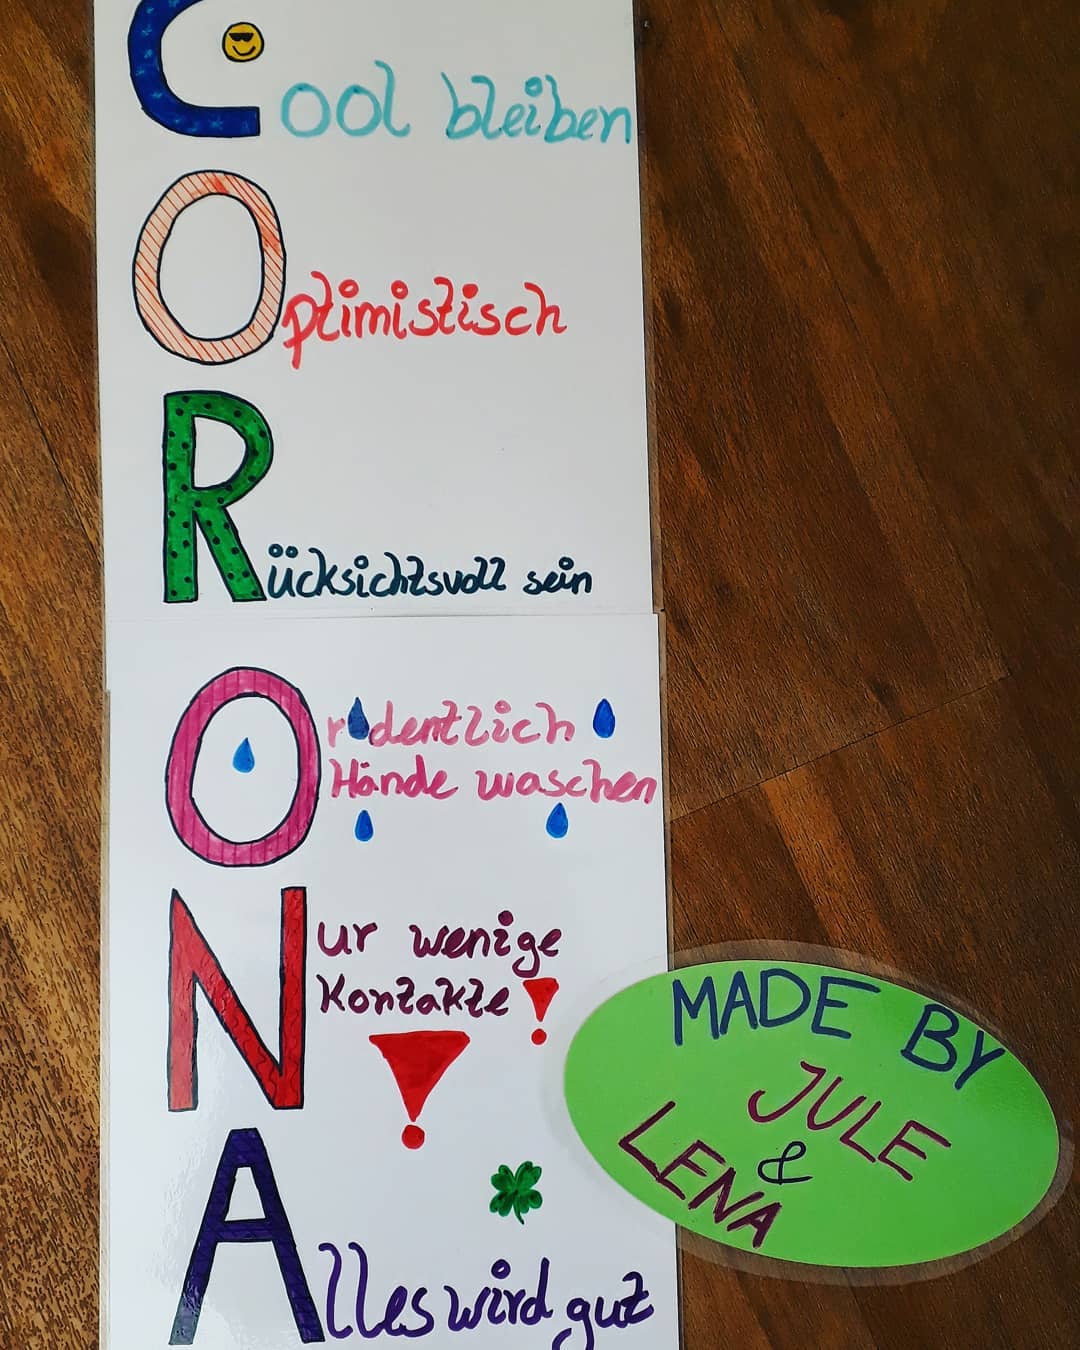 Cool bleiben
Optimistisch
Rücksichtsvoll sein
Ordentlich
Hände waschen
Nur wenige
Kontakte!
!
Alles wird gut
MADE BY
JULE
&
LENA